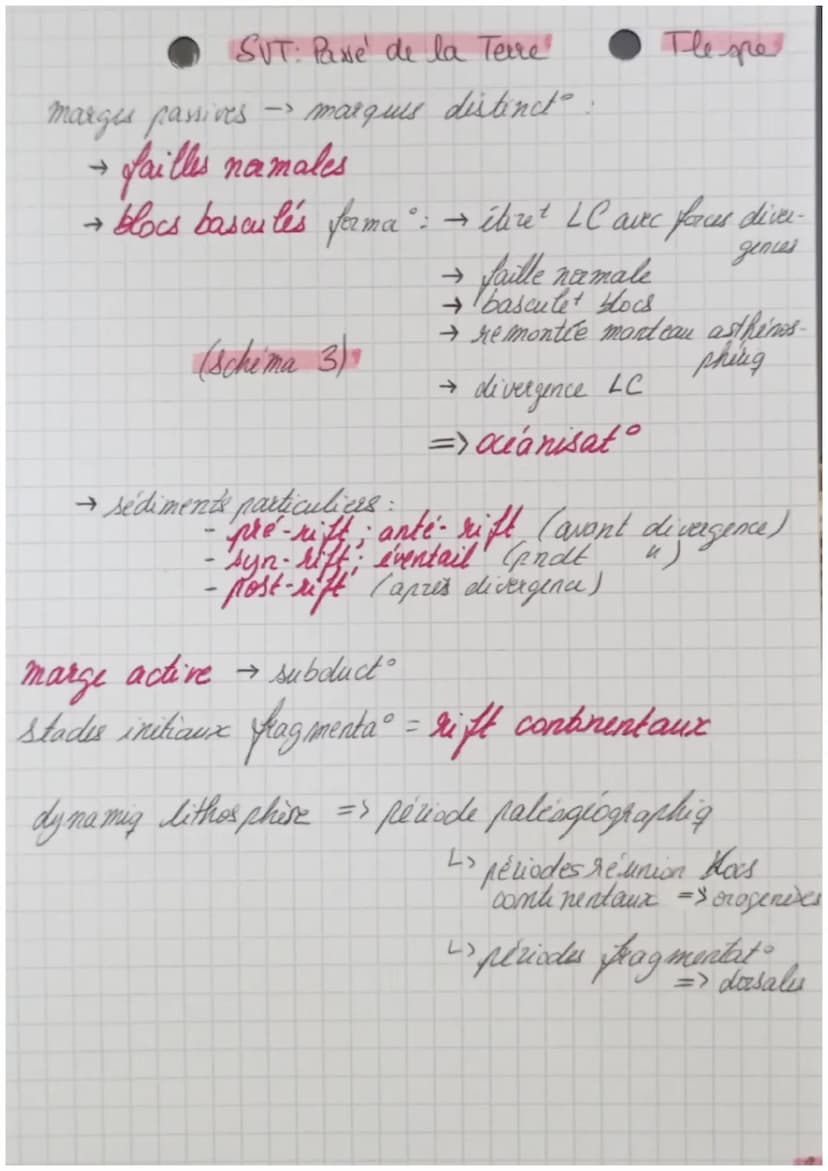 SVT: Passé de la Terre Tle spe
marges passives → marques distinct° :
→ failles normales
→ blocs basculés forma° : → étiret LC avec forces diver-
gences
→ faille normale
→ basculet blocs
→ remontée manteau asthénos-
phériq
(schéma 3)
→ divergence LC
=> océanisat°
→ sédiments particuliers :
- pré-rift ; anté-rift (avant divergence)
- syn-rift ; éventail (pndt ")
- post-rift (après divergence)
marge active → subduct°
stades initiaux fragmenta° = rift continentaux
dynamiq lithosphère => période paléogéographiq
↳ périodes réunion blocs
continentaux => orogenèses
↳ périodes fragmentat°
=> dorsales